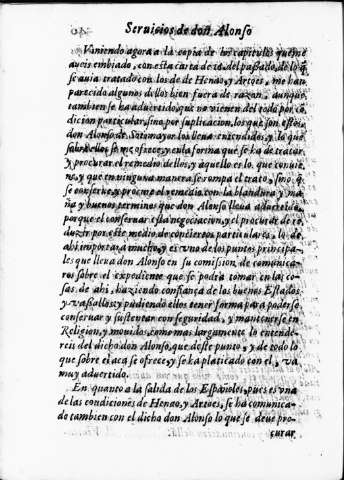 Seruicios de don Alonso
Viniendo agora a la copia de los capitulos que me
aueis embiado, con esta carta de 12. del passado, de lo q̃
se auia tratado con los de Henao, y Artoes, me han
parecido algunos dellos bien fuera de razon, aunque
tambien se ha aduertido, que no vienen del todo por cõ
dicion particular, sino por suplicacion, los que son estos
don Alonso de Sotomayor los lleua entendidos, y lo que
sobre ellos se me ofrece, y en la forma que se ha de tratar
y procurar el remedio dellos, y aquello es lo que conuie-
ne, y que en ninguna manera se rompa el trato, sino q̃
se conserue y procure el remedio con la blandura y ma-
ña y buenos terminos que don Alonso lleua aduertido,
porque el conseruar esta negociacion, y el procurar de re
duzir por este medio de conciertos particulares, lo de
ahi, importara mucho, y es vno de los puntos principa-
les que lleua don Alonso en su comission de comunica-
ros sobre el expediente que se podria tomar en las co-
sas de ahi, haziendo confiança de los buenos Estados
y vassallos, y pudiendo ellos tener forma para poderse
conseruar y sustentar con seguridad, y mantenerse en
Religion, y mouidos, como mas largamente lo entende-
reis del dicho don Alonso, que deste punto, y de todo lo
que sobre el aca se ofrece, y se ha platicado con el, va
muy aduertido.
En quanto a la salida de los Españoles, pues es vna
de las condiciones de Henao, y Artoes, se ha comunica-
do tambien con el dicho don Alonso lo que se deue pro-
curar